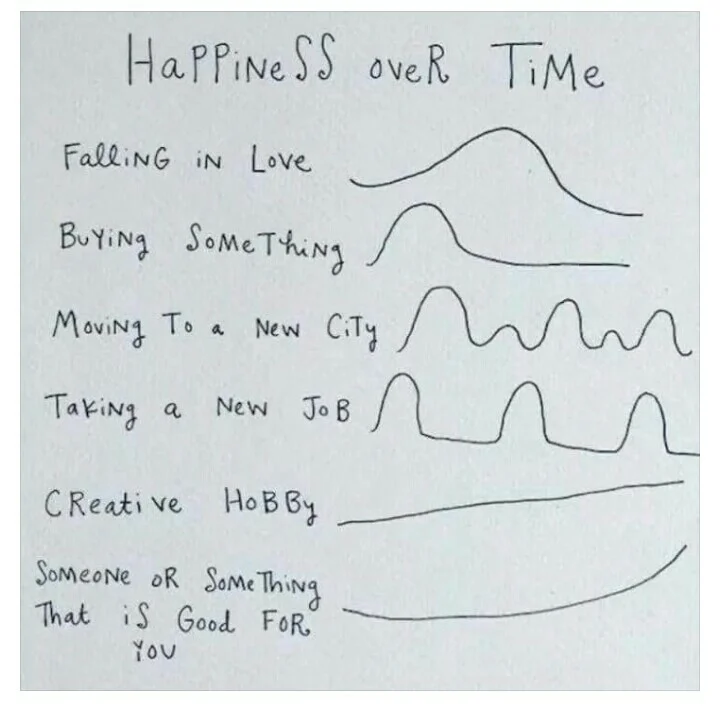 HaPPiNeSS oveR TiMe
FalliNG iN Love
BuYiNg SoMeThiNg
MoviNg To a New CiTy
TakiNg a New JoB
CReative HoBBy
SoMeoNe oR SoMeThiNg
That iS Good FoR
You